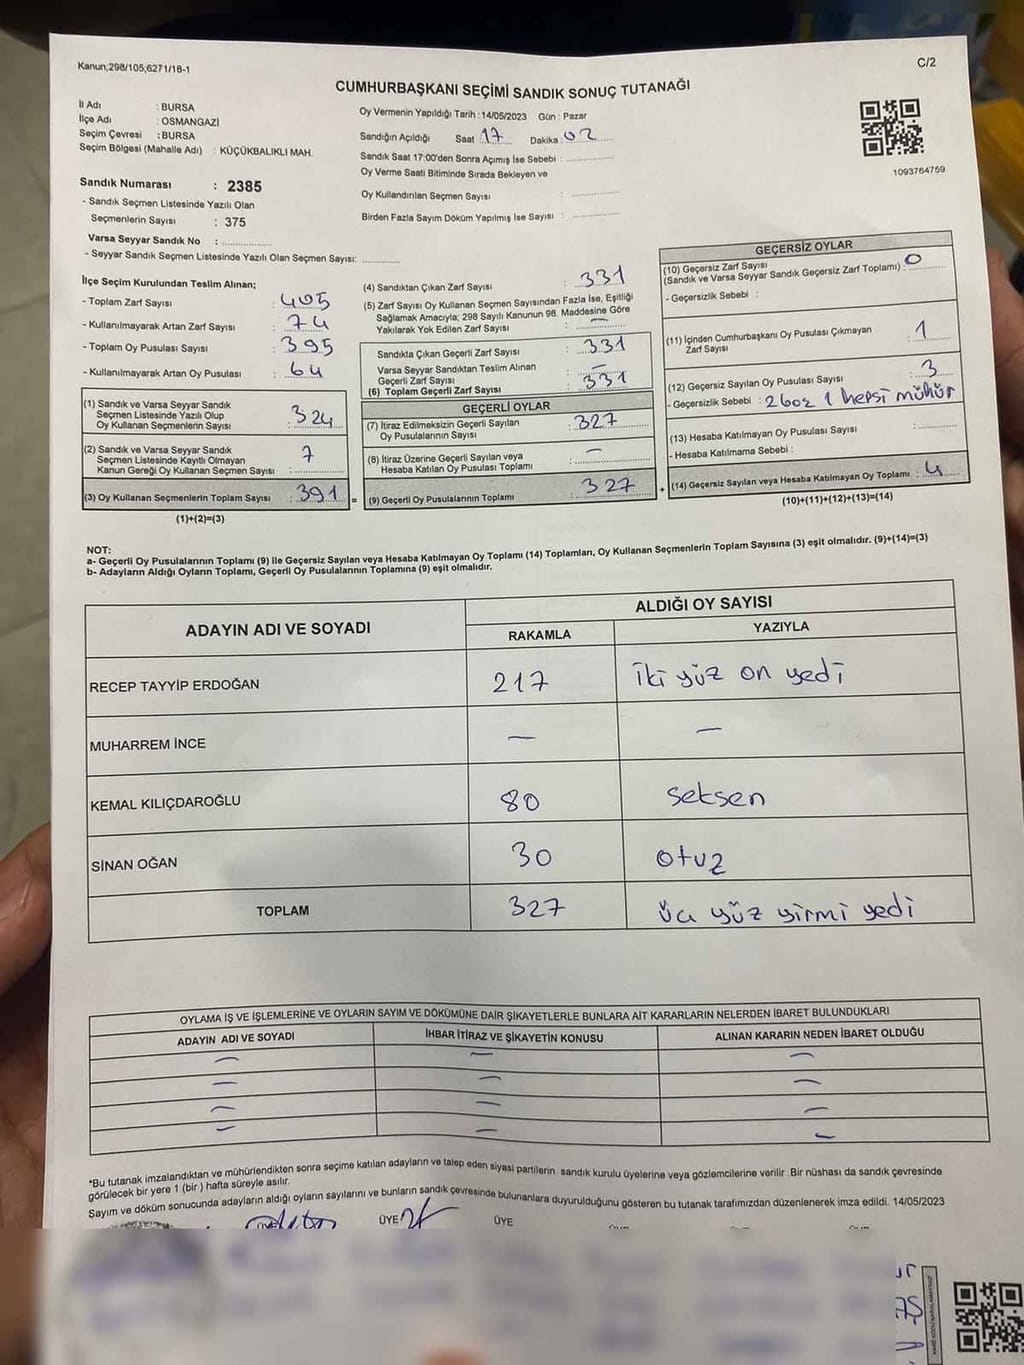 Kanun;298/105;6271/18-1
C/2
CUMHURBAŞKANI SEÇİMİ SANDIK SONUÇ TUTANAĞI
İl Adı : BURSA
İlçe Adı : OSMANGAZİ
Seçim Çevresi : BURSA
Seçim Bölgesi (Mahalle Adı) : KÜÇÜKBALIKLI MAH.
Sandık Numarası : 2385
- Sandık Seçmen Listesinde Yazılı Olan
Seçmenlerin Sayısı : 375
Varsa Seyyar Sandık No :
- Seyyar Sandık Seçmen Listesinde Yazılı Olan Seçmen Sayısı:
Oy Vermenin Yapıldığı Tarih : 14/05/2023 Gün : Pazar
Sandığın Açıldığı Saat : 17 Dakika : 02
Sandık Saat 17:00'den Sonra Açımış İse Sebebi :
Oy Verme Saati Bitiminde Sırada Bekleyen ve
Oy Kullandırılan Seçmen Sayısı :
Birden Fazla Sayım Döküm Yapılmış İse Sayısı :
1093764759
İlçe Seçim Kurulundan Teslim Alınan;
- Toplam Zarf Sayısı : 405
- Kullanılmayarak Artan Zarf Sayısı : 74
- Toplam Oy Pusulası Sayısı : 395
- Kullanılmayarak Artan Oy Pusulası : 64
(1) Sandık ve Varsa Seyyar Sandık
Seçmen Listesinde Yazılı Olup
Oy Kullanan Seçmenlerin Sayısı : 324
(2) Sandık ve Varsa Seyyar Sandık
Seçmen Listesinde Kayıtlı Olmayan
Kanun Gereği Oy Kullanan Seçmen Sayısı : 7
(3) Oy Kullanan Seçmenlerin Toplam Sayısı : 391 =
(1)+(2)=(3)
(4) Sandıktan Çıkan Zarf Sayısı : 331
(5) Zarf Sayısı Oy Kullanan Seçmen Sayısından Fazla İse, Eşitliği
Sağlamak Amacıyla; 298 Sayılı Kanunun 98. Maddesine Göre
Yakılarak Yok Edilen Zarf Sayısı : —
Sandıkta Çıkan Geçerli Zarf Sayısı : 331
Varsa Seyyar Sandıktan Teslim Alınan
Geçerli Zarf Sayısı : —
(6) Toplam Geçerli Zarf Sayısı : 331
GEÇERLİ OYLAR
(7) İtiraz Edilmeksizin Geçerli Sayılan
Oy Pusulalarının Sayısı : 327
(8) İtiraz Üzerine Geçerli Sayılan veya
Hesaba Katılan Oy Pusulası Toplamı : —
(9) Geçerli Oy Pusulalarının Toplamı : 327 +
GEÇERSİZ OYLAR
(10) Geçersiz Zarf Sayısı
(Sandık ve Varsa Seyyar Sandık Geçersiz Zarf Toplamı) : 0
- Geçersizlik Sebebi :
(11) İçinden Cumhurbaşkanı Oy Pusulası Çıkmayan
Zarf Sayısı : 1
(12) Geçersiz Sayılan Oy Pusulası Sayısı : 3
- Geçersizlik Sebebi : 2 boz 1 hepsi mühür
(13) Hesaba Katılmayan Oy Pusulası Sayısı :
- Hesaba Katılmama Sebebi :
(14) Geçersiz Sayılan veya Hesaba Katılmayan Oy Toplamı : 4
(10)+(11)+(12)+(13)=(14)
NOT:
a- Geçerli Oy Pusulalarının Toplamı (9) ile Geçersiz Sayılan veya Hesaba Katılmayan Oy Toplamı (14) Toplamları, Oy Kullanan Seçmenlerin Toplam Sayısına (3) eşit olmalıdır. (9)+(14)=(3)
b- Adayların Aldığı Oyların Toplamı, Geçerli Oy Pusulalarının Toplamına (9) eşit olmalıdır.
ADAYIN ADI VE SOYADI
ALDIĞI OY SAYISI
RAKAMLA YAZIYLA
RECEP TAYYİP ERDOĞAN 217 İki yüz on yedi
MUHARREM İNCE — —
KEMAL KILIÇDAROĞLU 80 seksen
SİNAN OĞAN 30 otuz
TOPLAM 327 Üç yüz yirmi yedi
OYLAMA İŞ VE İŞLEMLERİNE VE OYLARIN SAYIM VE DÖKÜMÜNE DAİR ŞİKAYETLERLE BUNLARA AİT KARARLARIN NELERDEN İBARET BULUNDUKLARI
ADAYIN ADI VE SOYADI İHBAR İTİRAZ VE ŞİKAYETİN KONUSU ALINAN KARARIN NEDEN İBARET OLDUĞU
— — —
— — —
— — —
— — —
*Bu tutanak imzalandıktan ve mühürlendikten sonra seçime katılan adayların ve talep eden siyasi partilerin sandık kurulu üyelerine veya gözlemcilerine verilir. Bir nüshası da sandık çevresinde
görülecek bir yere 1 (bir) hafta süreyle asılır.
Sayım ve döküm sonucunda adayların aldığı oyların sayılarını ve bunların sandık çevresinde bulunanlara duyurulduğunu gösteren bu tutanak tarafımızdan düzenlenerek imza edildi. 14/05/2023
ÜYE ÜYE